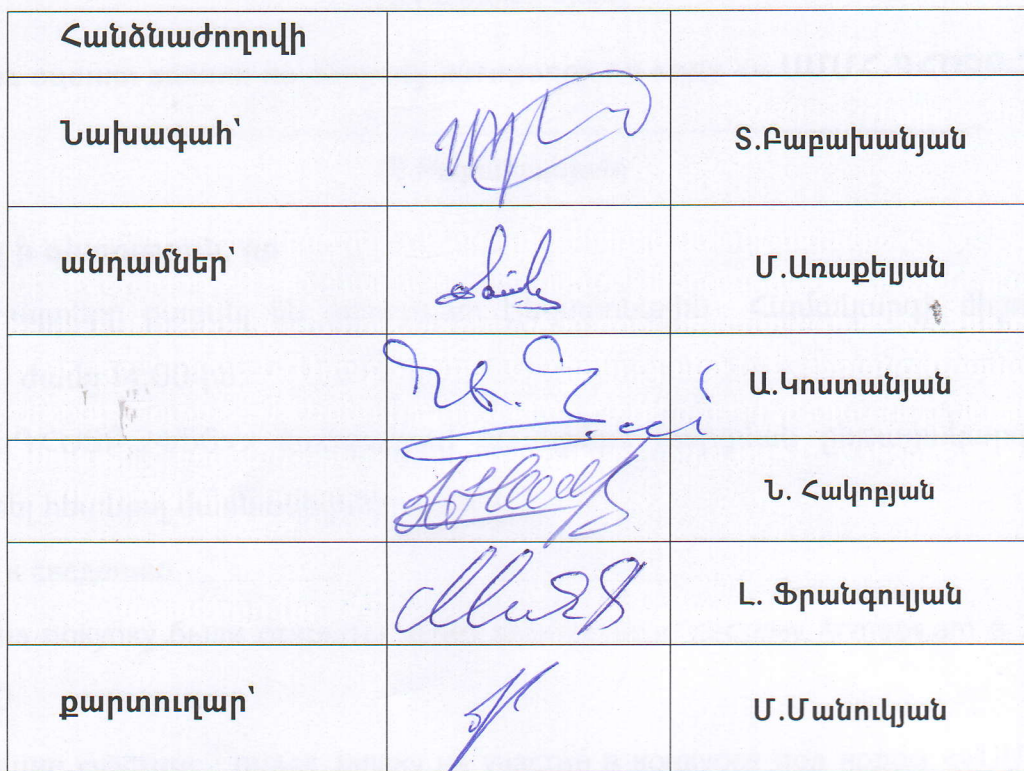 Հանձնաժողովի
Նախագահ՝ Տ.Բաբախանյան
անդամներ՝ Մ.Առաքելյան
Ա.Կոստանյան
Ն. Հակոբյան
Լ. Ֆրանգուլյան
քարտուղար՝ Մ.Մանուկյան